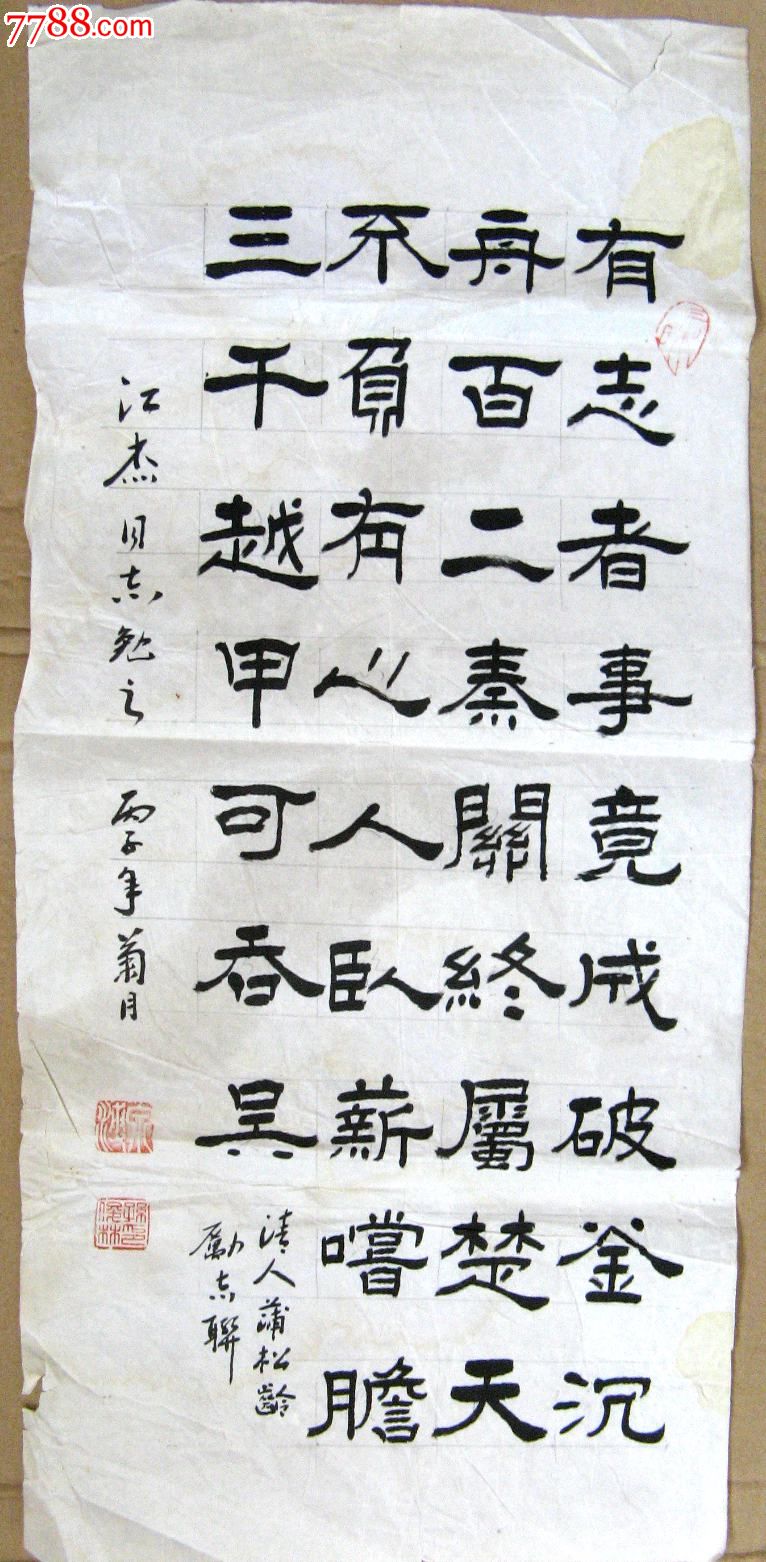 7788.com
有志者事竟成破釜沉
舟百二秦關終屬楚天
不負有心人臥薪嚐膽
三千越甲可吞吳
清人蒲松齡
勵志聯
江杰同志勉之 丙子年菊月